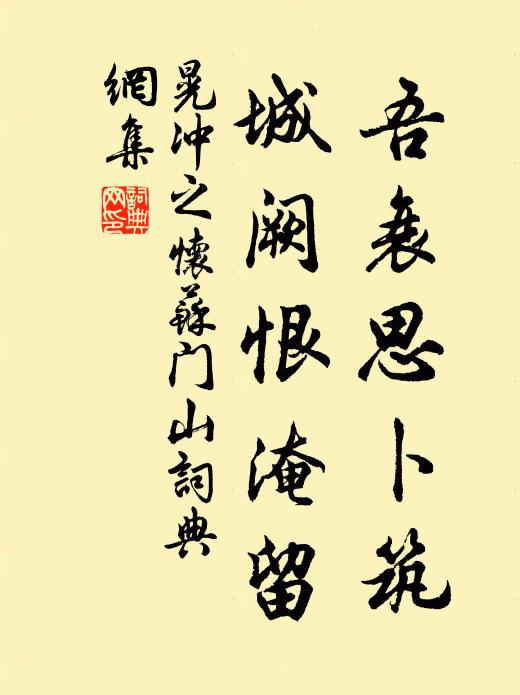 吾衰思卜筑
城阙恨淹留
晁冲之懷蘇门山詞典
網集
詞典
网印